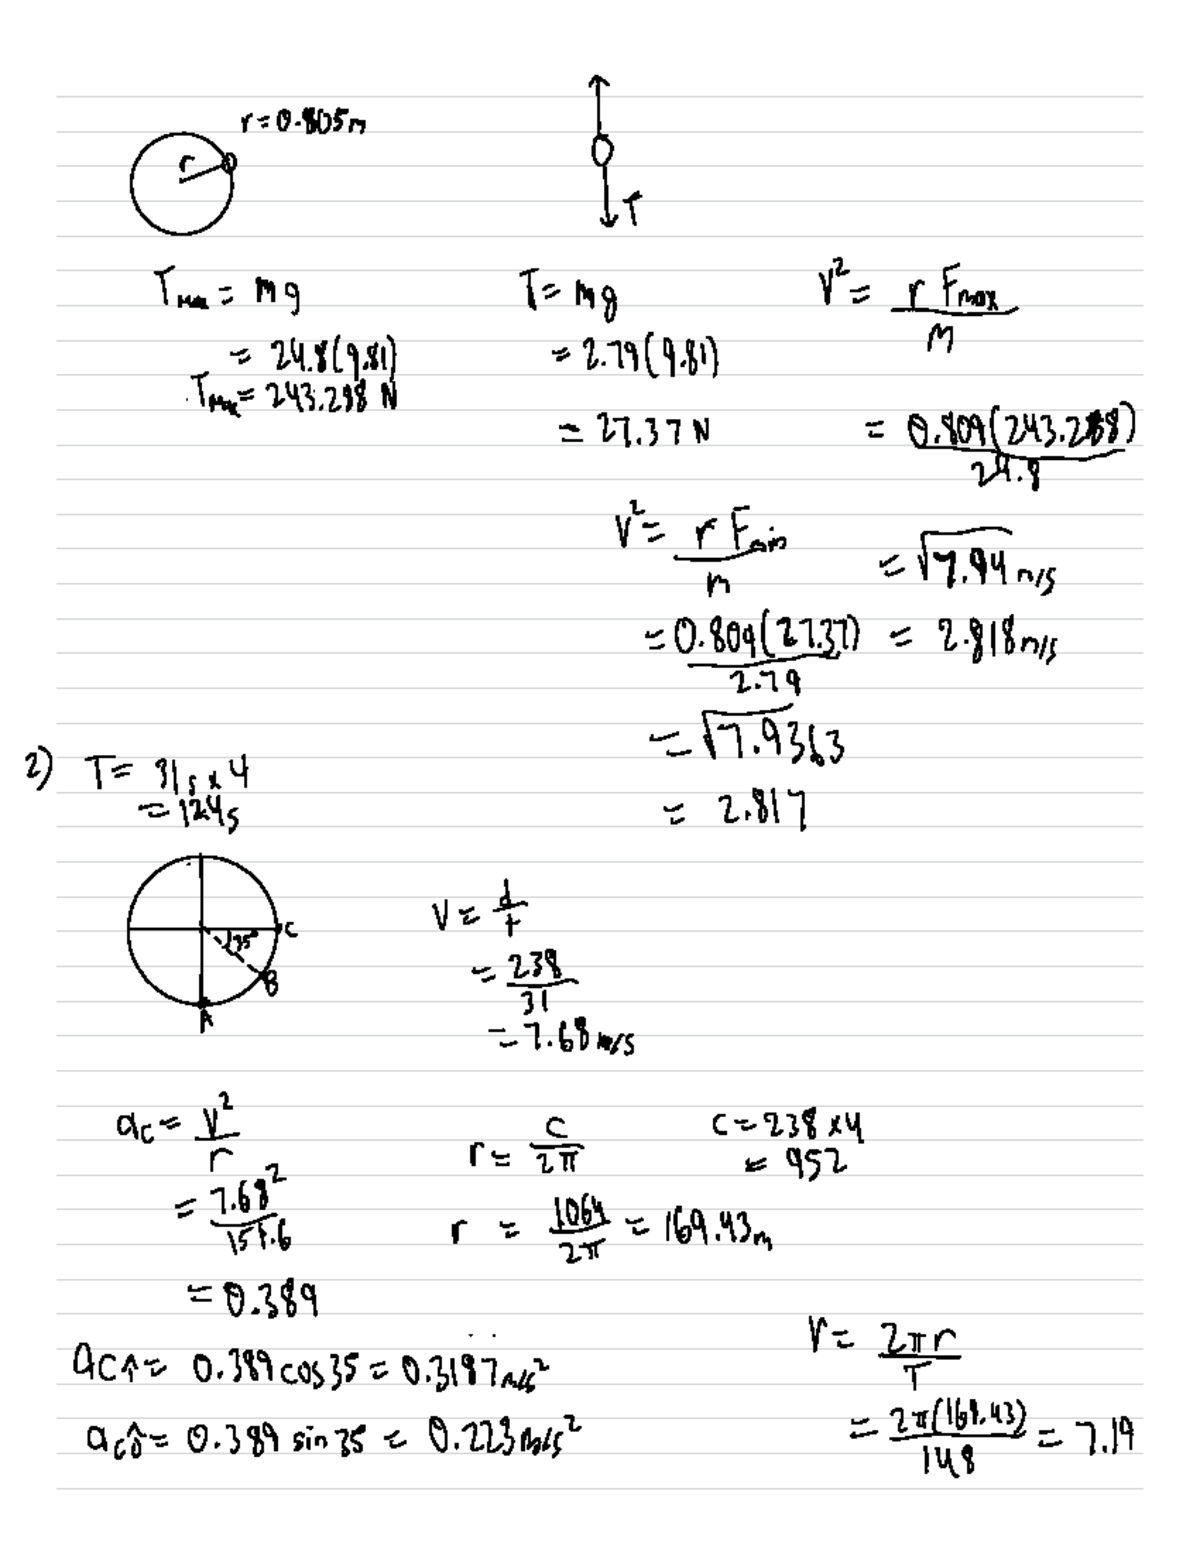 r = 0.805m
r
T
T Max = mg
= 24.8(9.81)
T Max = 243.288 N
T = mg
= 2.79(9.81)
= 27.37 N
V² = r Fmax / M
= 0.809(243.288) / 24.8
= √7.94 m/s
= 2.818 m/s
V² = r Fmin / m
= 0.809(27.37) / 2.79
= √7.9363
= 2.817
2) T = 31s x 4
= 124s
35°
C
B
A
V = d / t
= 238 / 31
= 7.68 m/s
ac = V² / r
= 7.68² / 151.6
= 0.389
r = C / 2π
r = 1064 / 2π = 169.43m
C = 238 x 4
= 952
ac = 0.389 cos 35 = 0.3187 m/s²
ac = 0.389 sin 35 = 0.223 m/s²
V = 2πr / T
= 2π(169.43) / 148 = 7.19